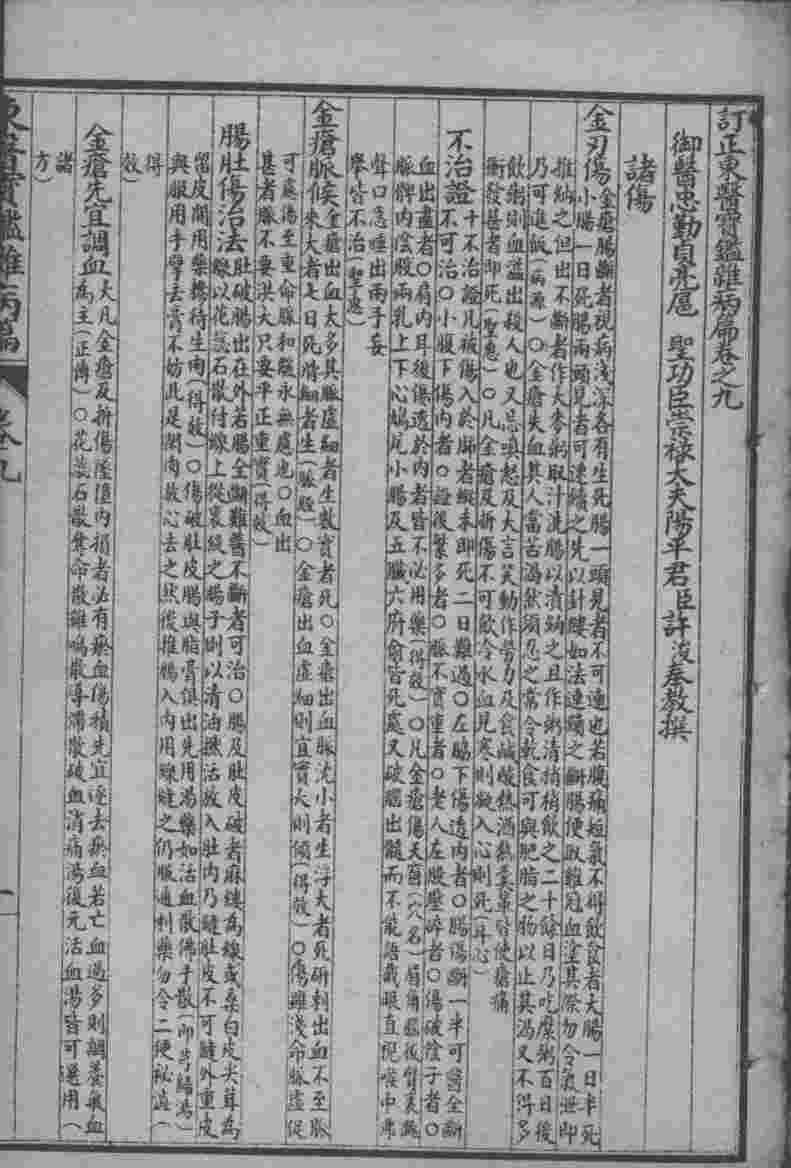 訂正東醫寶鑑雜病篇卷之九
御醫忠勤貞亮扈 聖功臣崇祿大夫陽平君臣許浚奉教撰
諸傷
金刃傷
金瘡腸斷者視病淺深各有生死腸一頭見者不可連也若腹痛短氣不得飲食者大腸一日半死
小腸一日死腸兩頭見者可速續之先以針縷如法連續之斷腸便取雞冠血塗其際勿令氣泄即
推納之但出不斷者作大麥粥取汁洗腸以漬納之且作粥清稍稍飲之二十餘日乃吃糜粥百日後
乃可進飯(病源)○金瘡失血其人當苦渴然須忍之常令乾食可與肥脂之物以止其渴又不得多
飲粥則血溢出殺人也又忌嗔怒及大言笑動作勞力及食鹹酸熱酒熱羹輩皆使瘡痛
衝發甚者即死(聖惠)○凡金瘡及折傷不可飲冷水血見寒則凝入心則死(入心)
不治證
十不治證凡被傷入於肺者縱未即死二日難過○左脇下傷透內者○腸傷斷一半可醫全斷
不可治○小腹下傷內者○證候繁多者○脉不實重者○老人左股壓碎者○傷破陰子者○
血出盡者○肩內耳後傷透於內者皆不必用藥(得效)○凡金瘡傷天窓(穴名)眉角腦後臂裏跳
脉髀內陰股兩乳上下心鳩尾小腸及五臟六府俞皆死處又破腦出髓而不能語戴眼直視喉中沸
聲口急唾出兩手妄
擧皆不治(聖惠)
金瘡脈候
金瘡出血太多其脈虛細者生數實者死○金瘡出血脈沈小者生浮大者死斫刺出血不至脈
來大者七日死滑細者生(脈經)○金瘡出血虛細則宜實大則傾(得效)○傷雖淺命脈虛促
可處傷至重命脉和緩永無慮也○血出
甚者脈不要洪大只要平正重實(得效)
腸肚傷治法
肚破腸出在外若腸全斷難醫不斷者可治○腸及肚皮破者麻縷爲線或桑白皮尖茸爲
線以花蘂石散付線上從裏縫之腸子則以清油撚活放入肚內乃縫肚皮不可縫外重皮
留皮開用藥糝待生肉(得效)○傷破肚皮腸與脂膏俱出先用湯藥如活血散佛手散(卽芎歸湯)
與服用手擘去膏不妨此是閑肉放心去之然後推腸入內用線縫之仍服通利藥勿令二便秘澁(
得
效)
金瘡先宜調血
大凡金瘡及折傷墜墮內損者必有瘀血傷積先宜逐去瘀血若亡血過多則調養氣血
爲主(正傳)○花蘂石散奪命散雞鳴散導滯散破血消痛湯復元活血湯皆可選用(
諸
方)
東醫寶鑑雜病篇 卷九 一